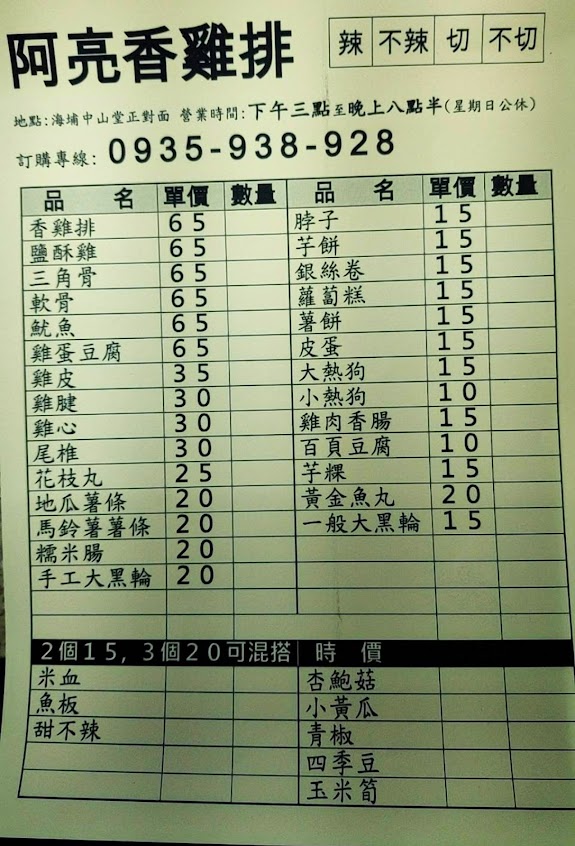 阿亮香雞排
辣 不辣 切 不切
地點:海埔中山堂正對面 營業時間:下午三點至晚上八點半(星期日公休)
訂購專線: 0935-938-928
品 名 單價 數量 品 名 單價 數量
香雞排 65 脖子 15
鹽酥雞 65 芋餅 15
三角骨 65 銀絲卷 15
軟骨 65 蘿蔔糕 15
魷魚 65 薯餅 15
雞蛋豆腐 65 皮蛋 15
雞皮 35 大熱狗 15
雞腱 30 小熱狗 10
雞心 30 雞肉香腸 15
尾椎 30 百頁豆腐 10
花枝丸 25 芋粿 15
地瓜薯條 20 黃金魚丸 20
馬鈴薯薯條 20 一般大黑輪 15
糯米腸 20
手工大黑輪 20
2個15,3個20可混搭 時 價
米血 杏鮑菇
魚板 小黃瓜
甜不辣 青椒
四季豆
玉米筍